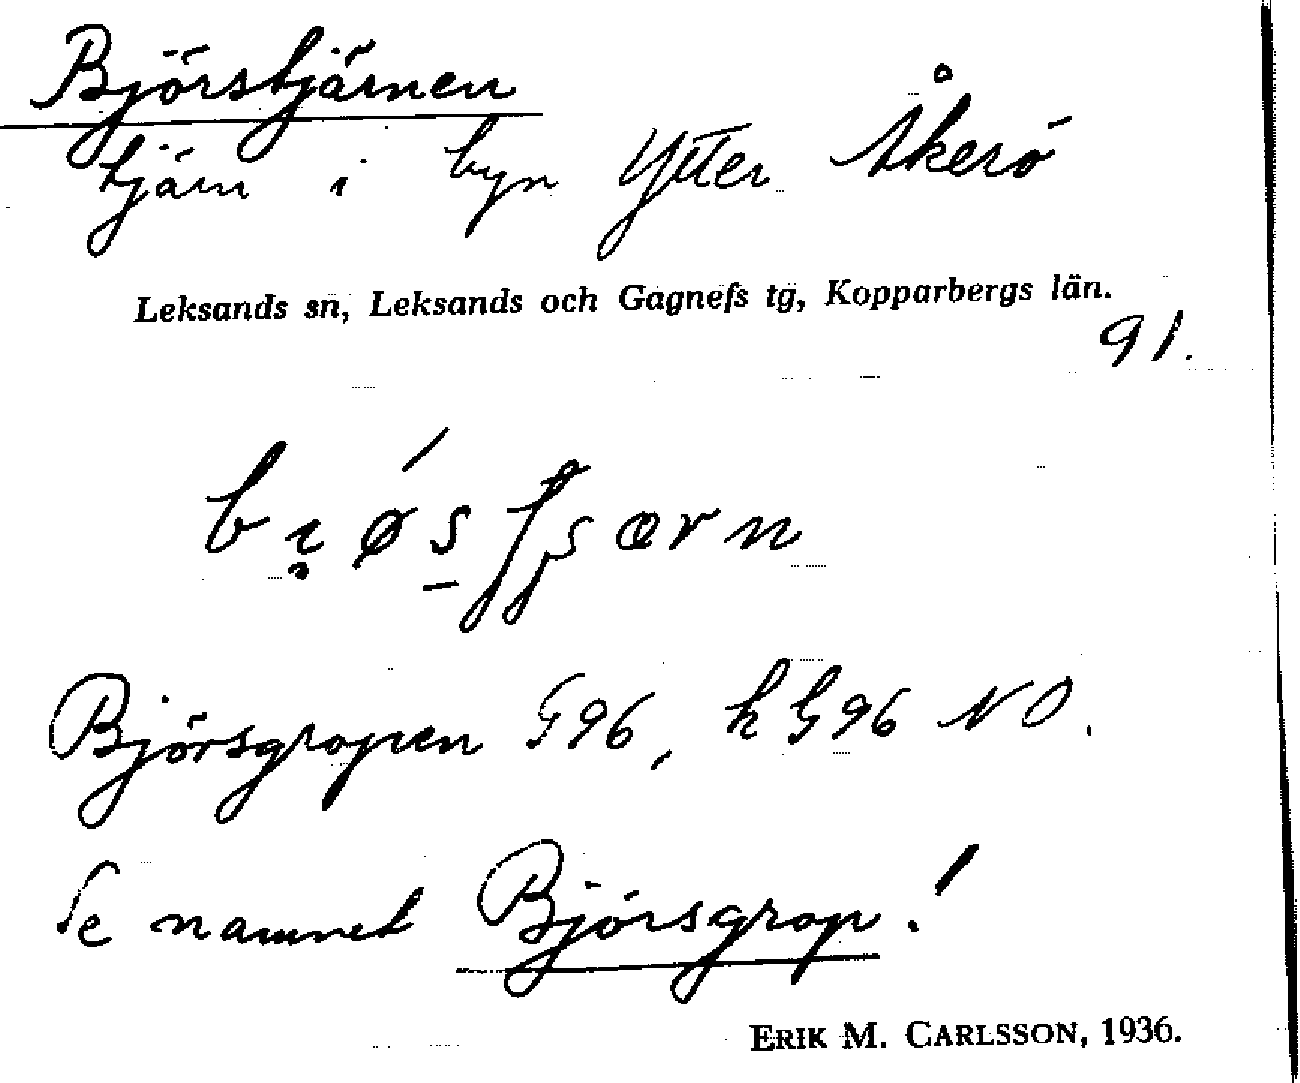 Björstjärnen
tjärn i byn Ytter Åkerö
Leksands sn, Leksands och Gagnefs tg, Kopparbergs län.
91.
Björsgropen G96, k G96 NO.
Se namnet Björsgrop!
ERIK M. CARLSSON, 1936.